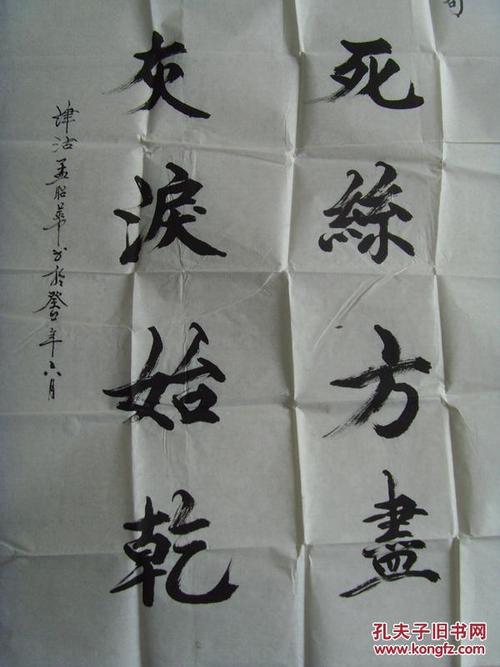 句
死絲方盡
灰淚始乾
津沽孟昭華书於癸年六月
孔夫子旧书网
www.kongfz.com